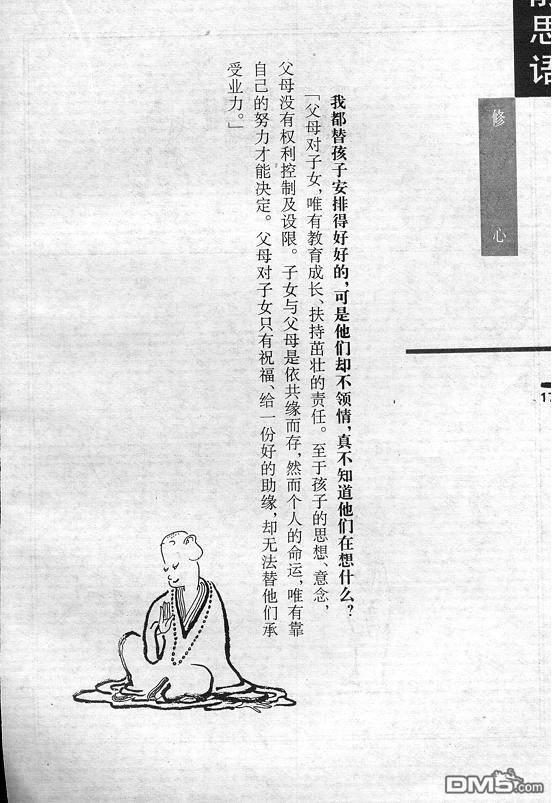 思语
修心
17
我都替孩子安排得好好的，可是他们却不领情，真不知道他们在想什么？
「父母对子女，唯有教育成长、扶持茁壮的责任。至于孩子的思想、意念，
父母没有权利控制及设限。子女与父母是依共缘而存，然而个人的命运，唯有靠
自己的努力才能决定。父母对子女只有祝福、给一份好的助缘，却无法替他们承
受业力。」
DM5.com